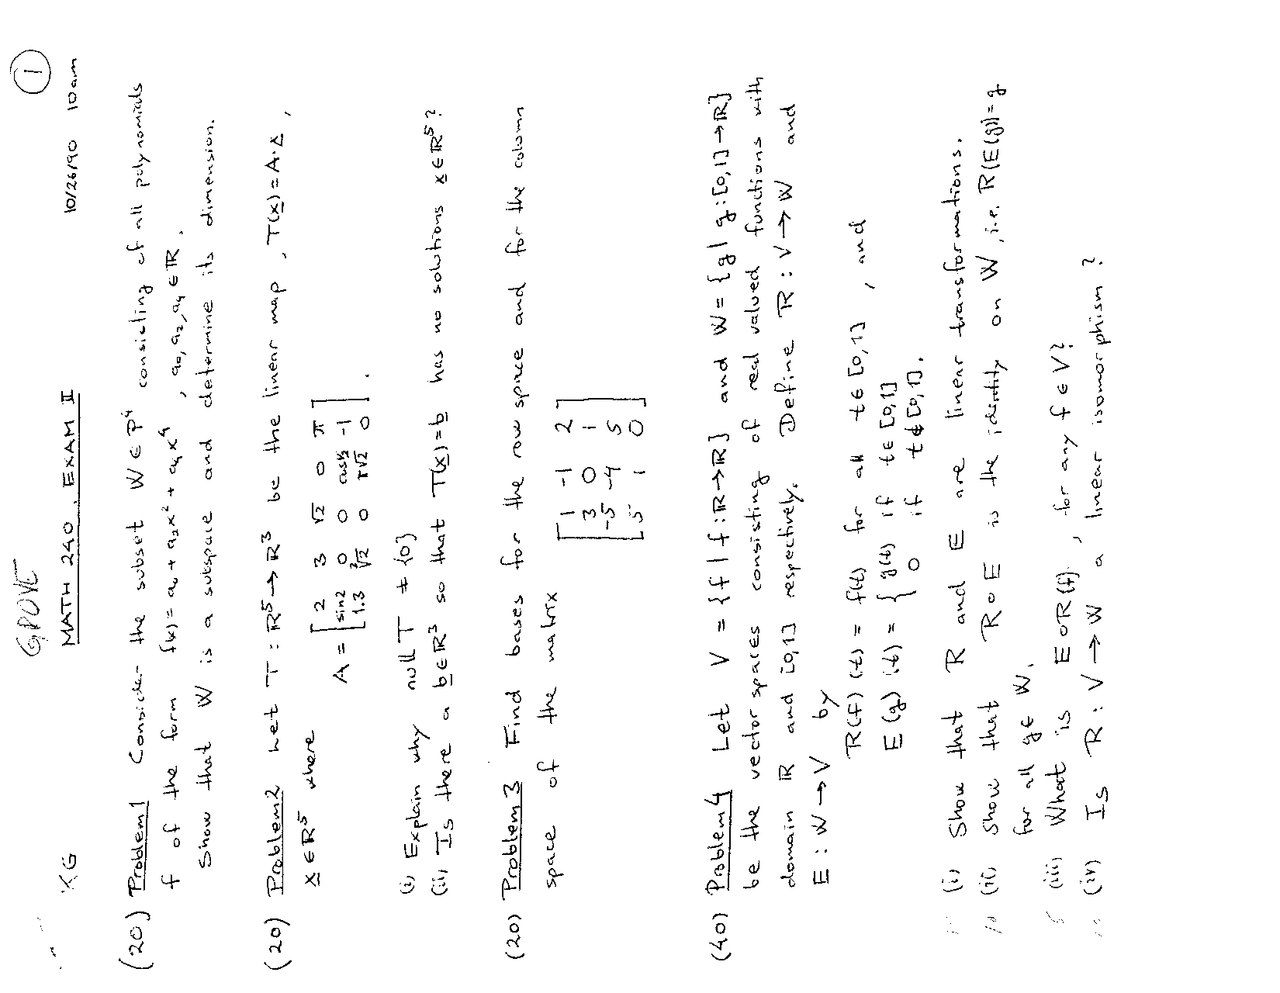 GROVE
①
KG MATH 240, EXAM II 10/26/90 10am
(20) Problem 1 Consider the subset W ∈ P⁴ consisting of all polynomials
f of the form f(x) = a₀ + a₂x² + a₄x⁴, a₀, a₂, a₄ ∈ ℝ.
Show that W is a subspace and determine its dimension.
(20) Problem 2 Let T : ℝ⁵ → ℝ³ be the linear map, T(x) = A·x,
x ∈ ℝ⁵ where
A = [ 2 3 √2 0 π
sin2 0 0 cos½ -1
1.3 ∛2 0 π√2 0 ].
(i) Explain why null T ≠ {0}
(ii) Is there a b ∈ ℝ³ so that T(x) = b has no solutions x ∈ ℝ⁵?
(20) Problem 3 Find bases for the row space and for the column
space of the matrix
[ 1 -1 2
3 0 1
-5 -4 5
5 1 0 ]
(40) Problem 4 Let V = {f | f : ℝ → ℝ} and W = {g | g : [0,1] → ℝ}
be the vector spaces consisting of real valued functions with
domain ℝ and [0,1] respectively. Define R : V → W and
E : W → V by
R(f)(t) = f(t) for all t ∈ [0,1], and
E(g)(t) = { g(t) if t ∈ [0,1]
0 if t ∉ [0,1].
(i) Show that R and E are linear transformations.
10 (ii) Show that R∘E is the identity on W, i.e. R(E(g)) = g
for all g ∈ W.
5 (iii) What is E∘R(f), for any f ∈ V?
(iv) Is R : V → W a linear isomorphism?